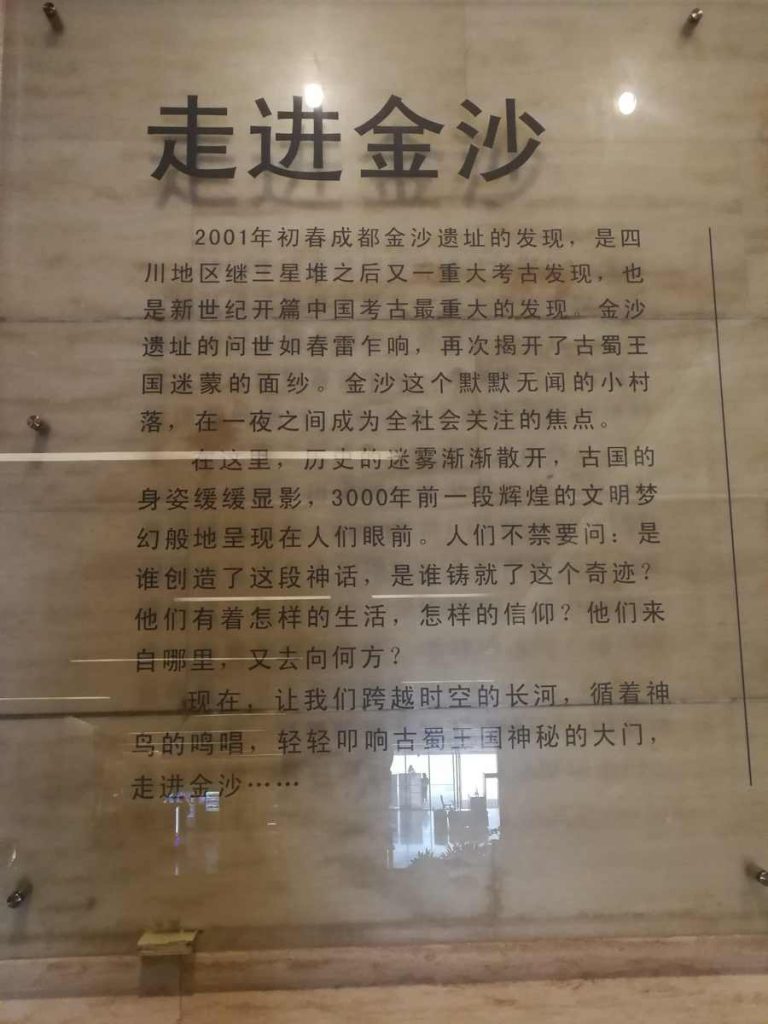 走进金沙
2001年初春成都金沙遗址的发现，是四
川地区继三星堆之后又一重大考古发现，也
是新世纪开篇中国考古最重大的发现。金沙
遗址的问世如春雷乍响，再次揭开了古蜀王
国迷蒙的面纱。金沙这个默默无闻的小村
落，在一夜之间成为全社会关注的焦点。
在这里，历史的迷雾渐渐散开，古国的
身姿缓缓显影，3000年前一段辉煌的文明梦
幻般地呈现在人们眼前。人们不禁要问：是
谁创造了这段神话，是谁铸就了这个奇迹？
他们有着怎样的生活，怎样的信仰？他们来
自哪里，又去向何方？
现在，让我们跨越时空的长河，循着神
鸟的鸣唱，轻轻叩响古蜀王国神秘的大门，
走进金沙……